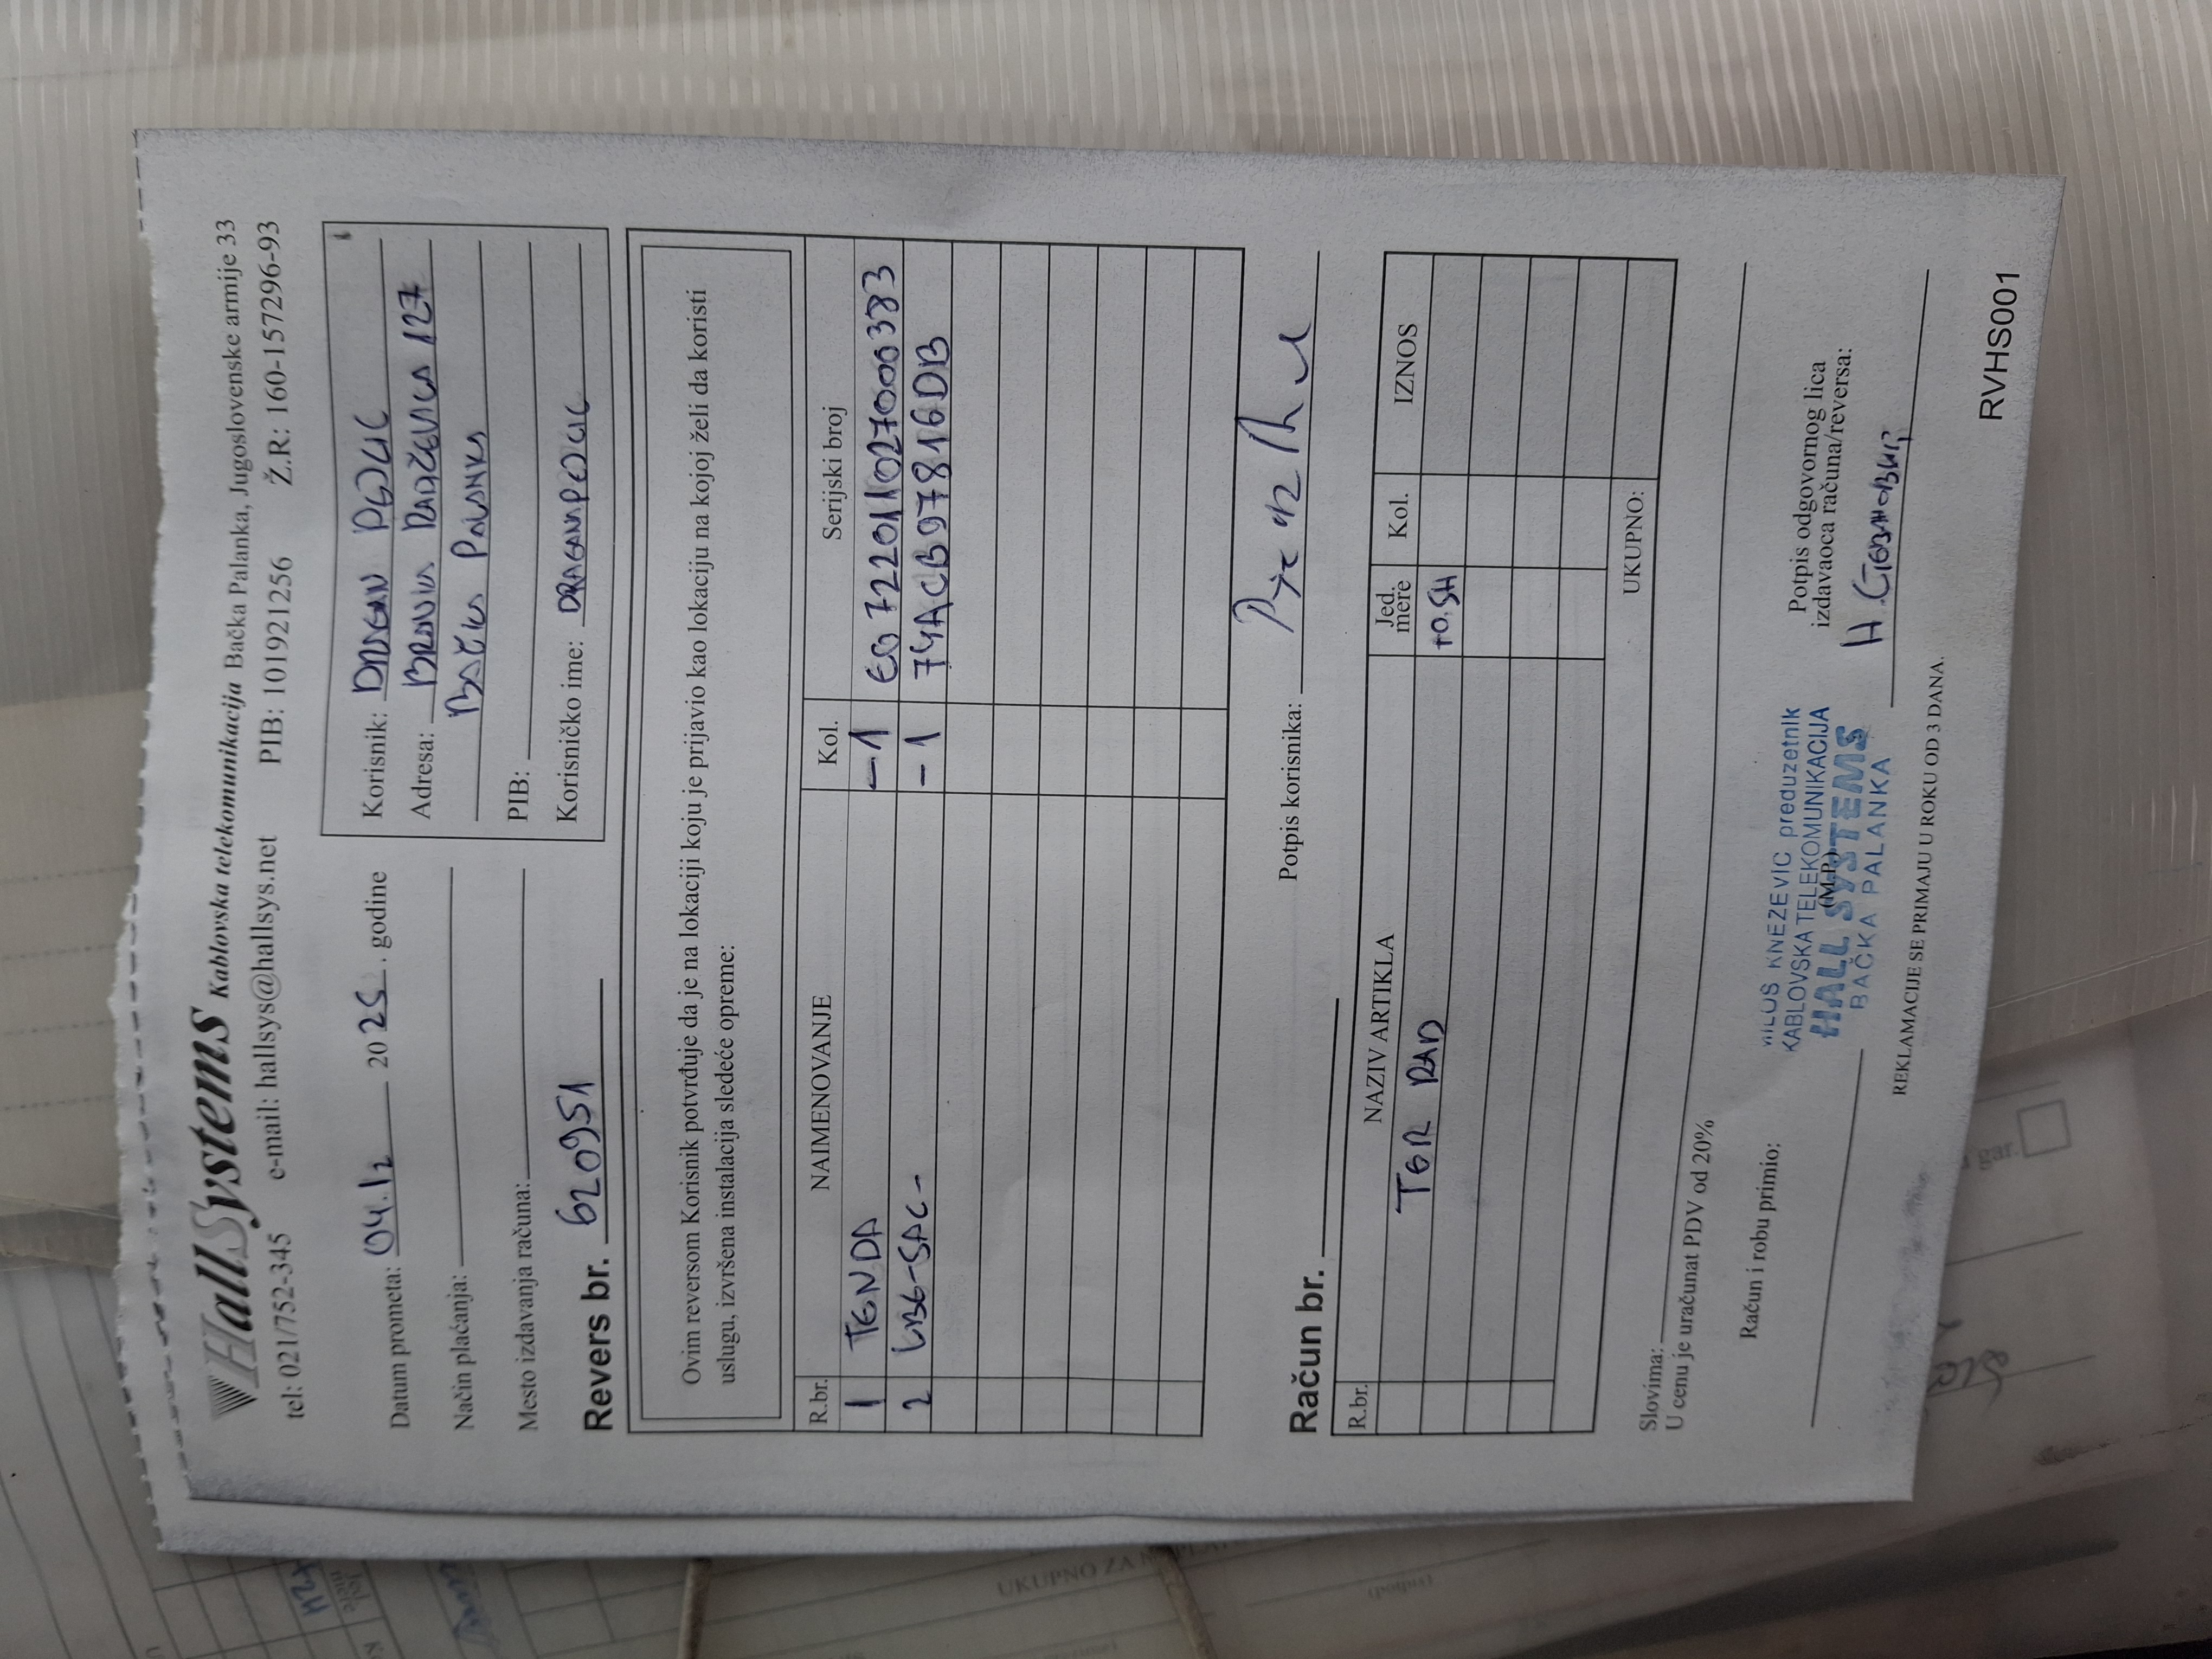 HallSystems Kablovska telekomunikacija Bačka Palanka, Jugoslovenske armije 33
tel: 021/752-345 e-mail: hallsys@hallsys.net PIB: 101921256 Ž.R: 160-157296-93
Datum prometa: 04.12 2025. godine
Način plaćanja:
Mesto izdavanja računa:
Revers br. 620951
Korisnik: DRAGAN PEJCIC
Adresa: BRANKA RADIČEVICA 127
BAČKA PALANKA
PIB:
Korisničko ime: DRAGANPEJCIC
Ovim reversom Korisnik potvrđuje da je na lokaciji koju je prijavio kao lokaciju na kojoj želi da koristi
uslugu, izvršena instalacija sledeće opreme:
R.br. NAIMENOVANJE Kol. Serijski broj
1 TENDA -1
2 -1 74ACB97816DB
Potpis korisnika:
Račun br.
R.br. NAZIV ARTIKLA Jed. mere Kol. IZNOS
TER RAD +0,5H
UKUPNO:
Slovima:
U cenu je uračunat PDV od 20%
Račun i robu primio:
MILOŠ KNEZEVIC preduzetnik
KABLOVSKA TELEKOMUNIKACIJA
(M.P.)
HALL SYSTEMS
BAČKA PALANKA
Potpis odgovornog lica
izdavaoca računa/reversa:
Н. Стевановић
REKLAMACIJE SE PRIMAJU U ROKU OD 3 DANA.
RVHS001
UKUPNO ZA
(potpis)
gar.